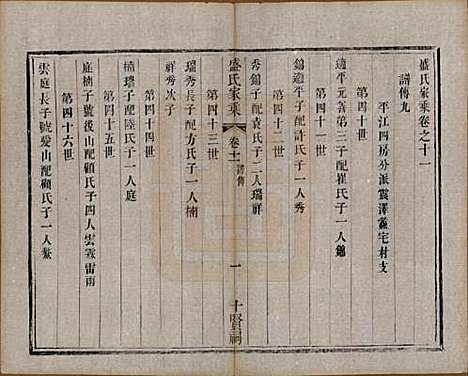 盛氏家乘卷之十一
譜傳九
平江四房分派震澤蠡宅村支
第四十世
適平元善第三子配崔氏子一人錦
第四十一世
錦適平子配許氏子一人秀
第四十二世
秀錦子配袁氏子二人瑞祥
盛氏家乘
卷十一
譜傳
一
十賢祠
第四十三世
瑞秀長子配方氏子一人楠
祥秀次子
第四十四世
楠瑞子配陸氏子一人庭
第四十五世
庭楠子號後山配顧氏子四人雲霖雷雨
第四十六世
雲庭長子號愛山配顧氏子一人鰲